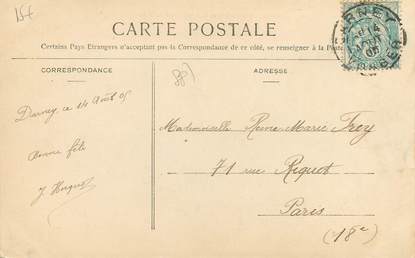 15f
CARTE POSTALE
Certains Pays Etrangers n'acceptant pas la Correspondance de ce côté, se renseigner à la Poste
CORRESPONDANCE
ADRESSE
DARNEY
14
05
VOSGES
88
Darney, ce 14 Août 05
Bonne fête
J. Huguet
Mademoiselle Reine Marie Frey
71 rue Riquet
Paris
(18e)